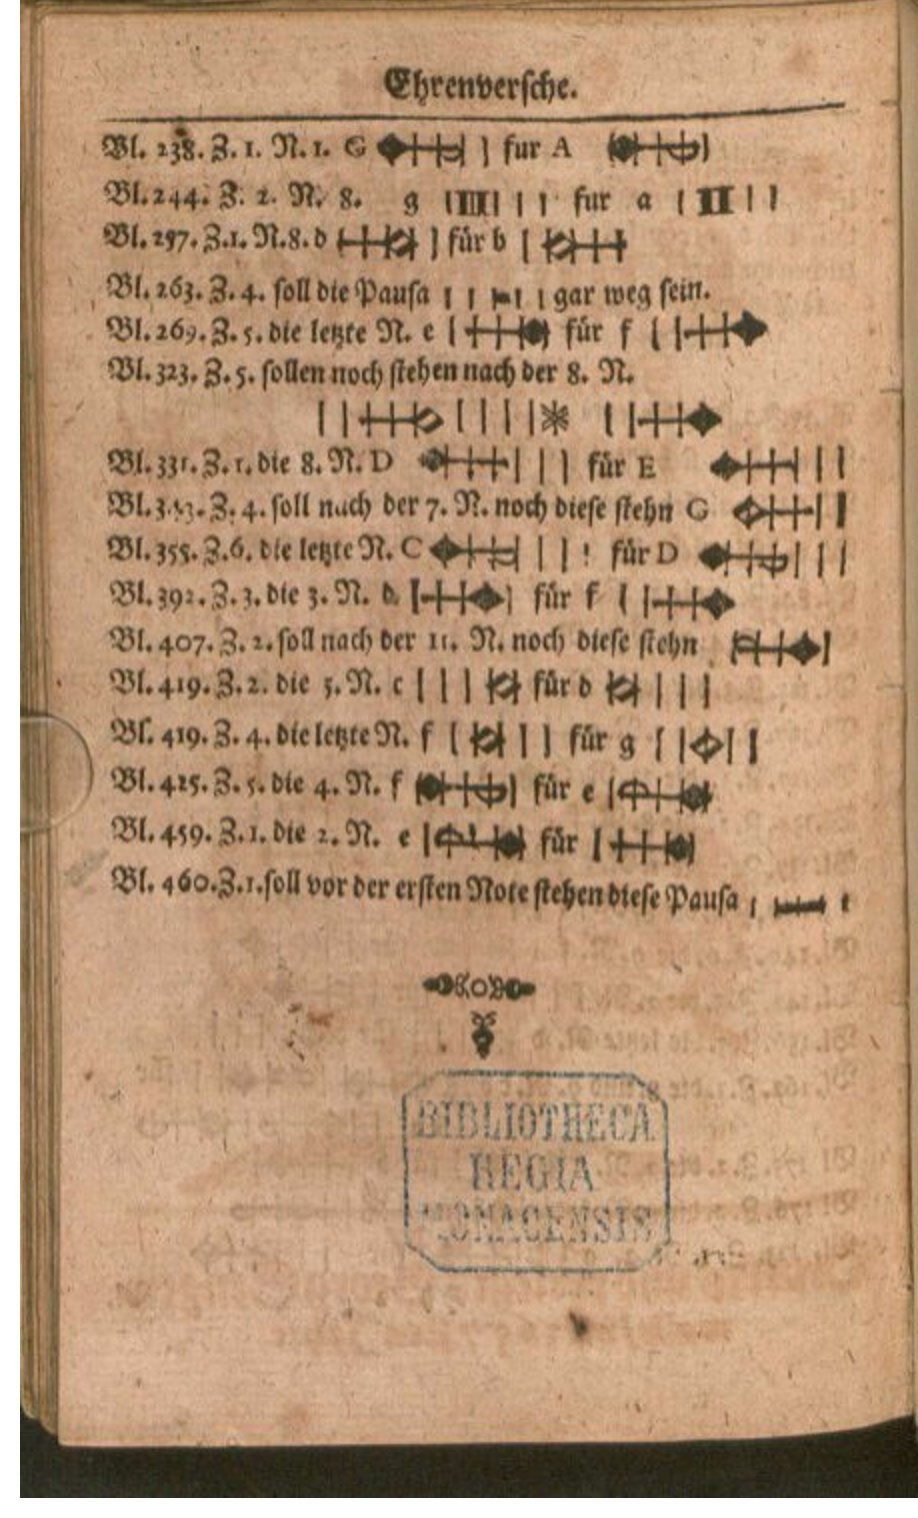 Ehrenversche.
Bl. 238. Z. 1. N. 1. G fur A
Bl. 244. Z. 2. N. 8. g fur a
Bl. 257. Z. 1. N. 8. d für b
Bl. 263. Z. 4. soll die Pausa gar weg sein.
Bl. 269. Z. 5. die letzte N. e für f
Bl. 323. Z. 5. sollen noch stehen nach der 8. N.
Bl. 331. Z. 1. die 8. N. D für E
Bl. Z. 4. soll nach der 7. N. noch diese stehn G
Bl. 355. Z. 6. die letzte N. C für D
Bl. 392. Z. 3. die 3. N. d. für f
Bl. 407. Z. 2. soll nach der 11. N. noch diese stehn
Bl. 419. Z. 2. die 5. N. c für d
Bl. 419. Z. 4. die letzte N. f für g
Bl. 425. Z. 5. die 4. N. f für e
Bl. 459. Z. 1. die 2. N. e für
Bl. 460. Z. 1. soll vor der ersten Note stehen diese Pausa
BIBLIOTHECA
REGIA
MONACENSIS